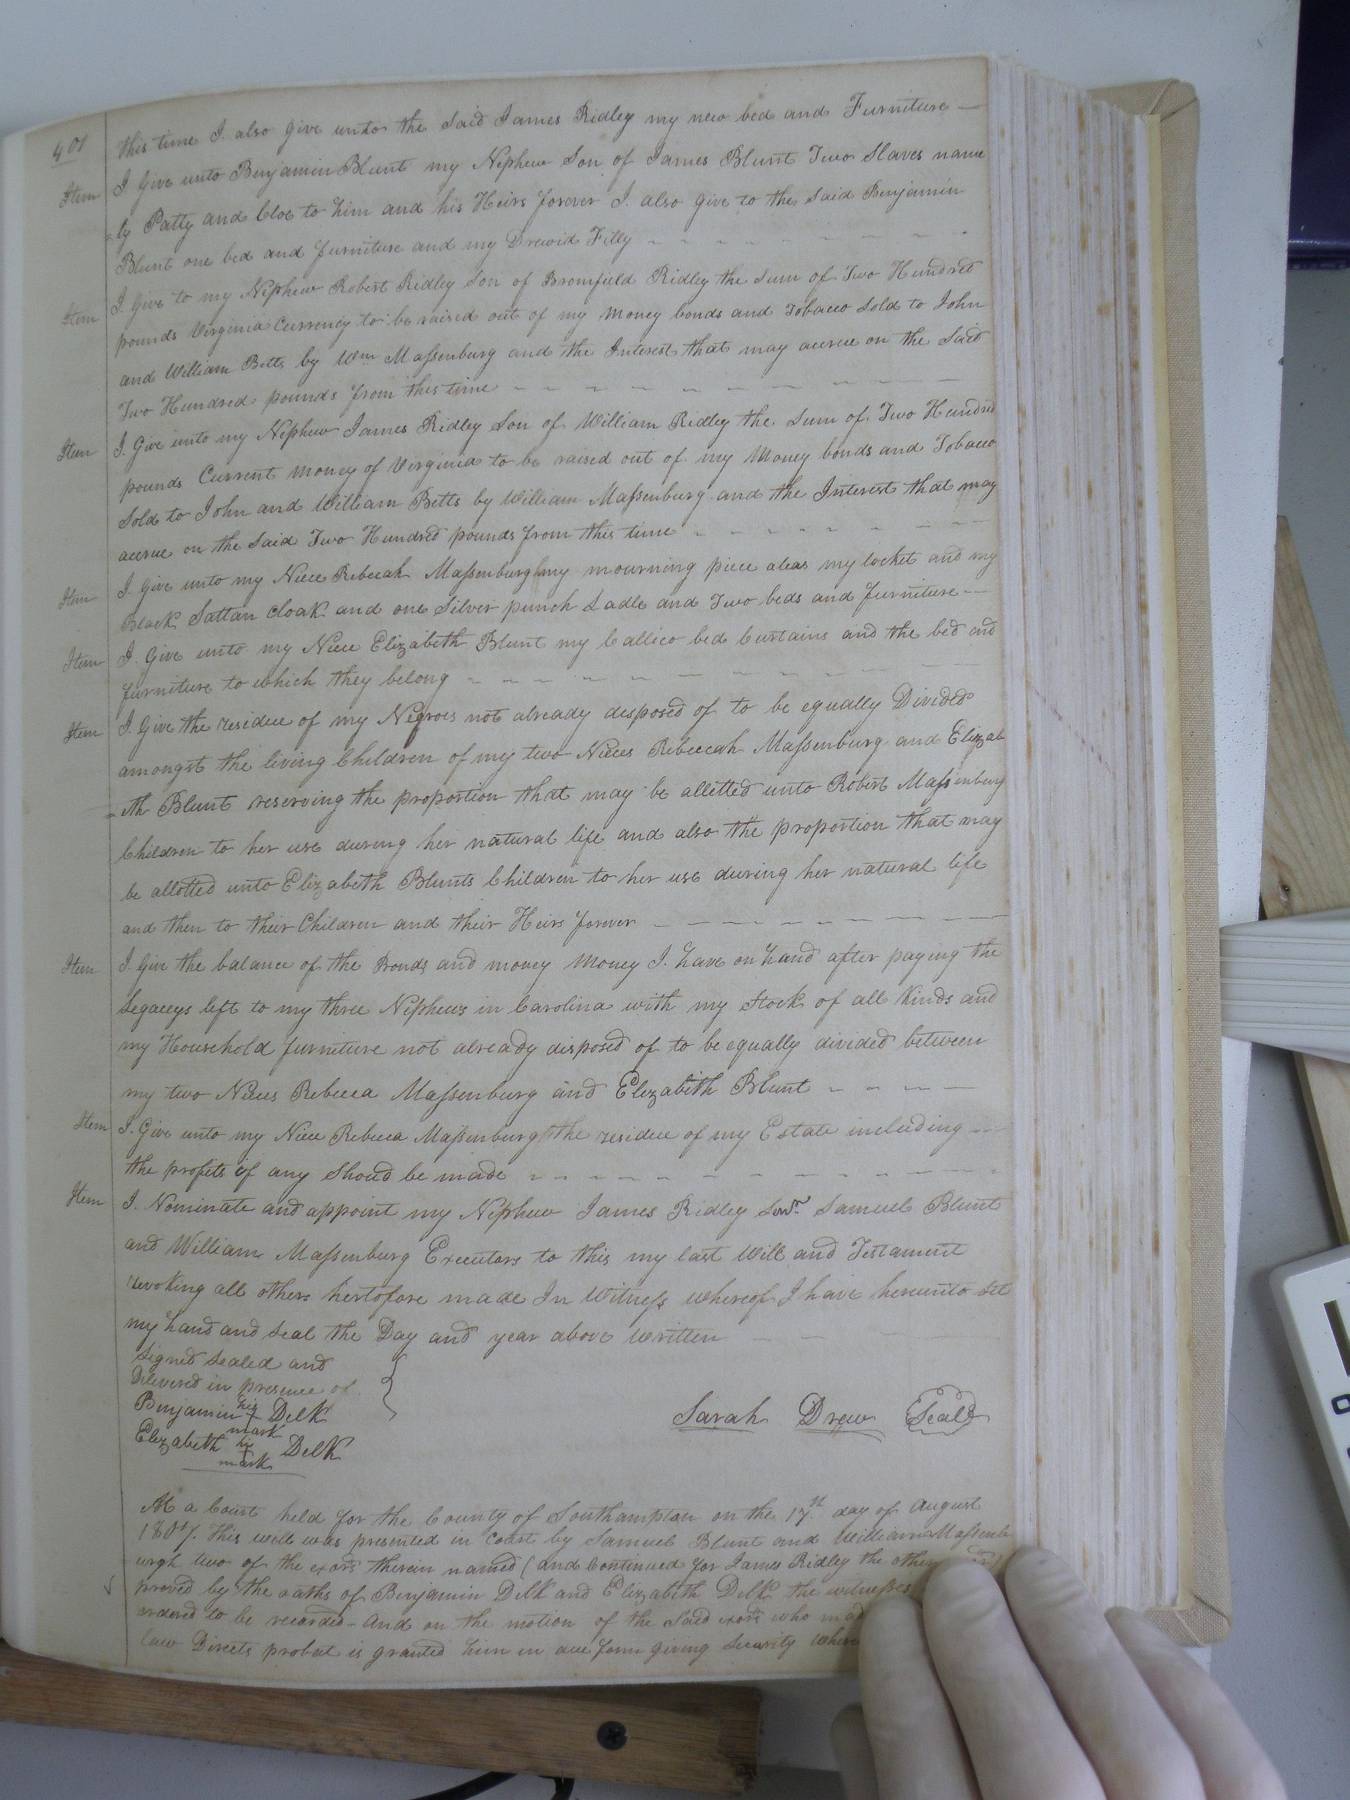 401
this time I also give unto the Said James Ridley my new bed and Furniture —
Item I Give unto Benjamin Blunt my Nephew Son of James Blunt Two Slaves name
ly Patty and Cloe to him and his Heirs forever I also give to the Said Benjamin
Blunt one bed and furniture and my Filly
Item I Give to my Nephew Robert Ridley Son of Bromfield Ridley the Sum of Two Hundred
pounds Virginia Currency to be raised out of my Money bonds and Tobacco Sold to John
and William Betts by Wm Massenburg and the Interest that may accrue on the Said
Two Hundred pounds from this time
Item I Give unto my Nephew James Ridley Son of William Ridley the Sum of Two Hundred
pounds Current Money of Virginia to be raised out of my Money bonds and Tobacco
Sold to John and William Betts by William Massenburg and the Interest that may
accrue on the Said Two Hundred pounds from this time
Item I Give unto my Niece Rebecah Massenburg my mourning piece aleas my locket and my
Black Sattan cloak and one Silver punch Ladle and Two beds and furniture —
Item I Give unto my Niece Elizabeth Blunt my Callico bed Curtains and the bed and
furniture to which they belong
Item I Give the residue of my Negroes not already disposed of to be equally Divided
amongst the living Children of my two Nieces Rebeccah Massenburg and Elizab
eth Blunt reserving the proportion that may be alletted unto Robert Massenburg
Children to her use during her natural life and also the proportion that may
be allotted unto Elizabeth Blunts Children to her use during her natural life
and then to their Children and their Heirs forever
Item I Give the balance of the Bonds and money Money I have on hand after paying the
Legaceys left to my three Nephews in Carolina with my Stock of all Kinds and
my Household furniture not already disposed of to be equally divided between
my two Nieces Rebecca Massenburg and Elizabeth Blunt
Item I Give unto my Niece Rebeca Massenburg the residue of my Estate including
the profits if any Should be made
Item I Nominate and appoint my Nephew James Ridley Samuel Blunt
and William Massenburg Executors to this my last Will and Testament
revoking all others hertofore made In Witness whereof I have hereunto Set
my hand and Seal the Day and year above written
Signed Sealed and
Delivered in presence of
Benjamin his + mark Delk
Sarah Drew Seal
Elizabeth her + mark Delk
At a Court held for the County of Southampton on the 17th day of August
1807. This will was presented in Court by Samuel Blunt and William Massenb
urgh two of the exors therein named (and Continued for James Ridley the other
proved by the oaths of Benjamin Delk and Elizabeth Delk the witnesses
ordered to be recorded - And on the motion of the Said exors who mad
law Directs probat is granted him in due form giving Security